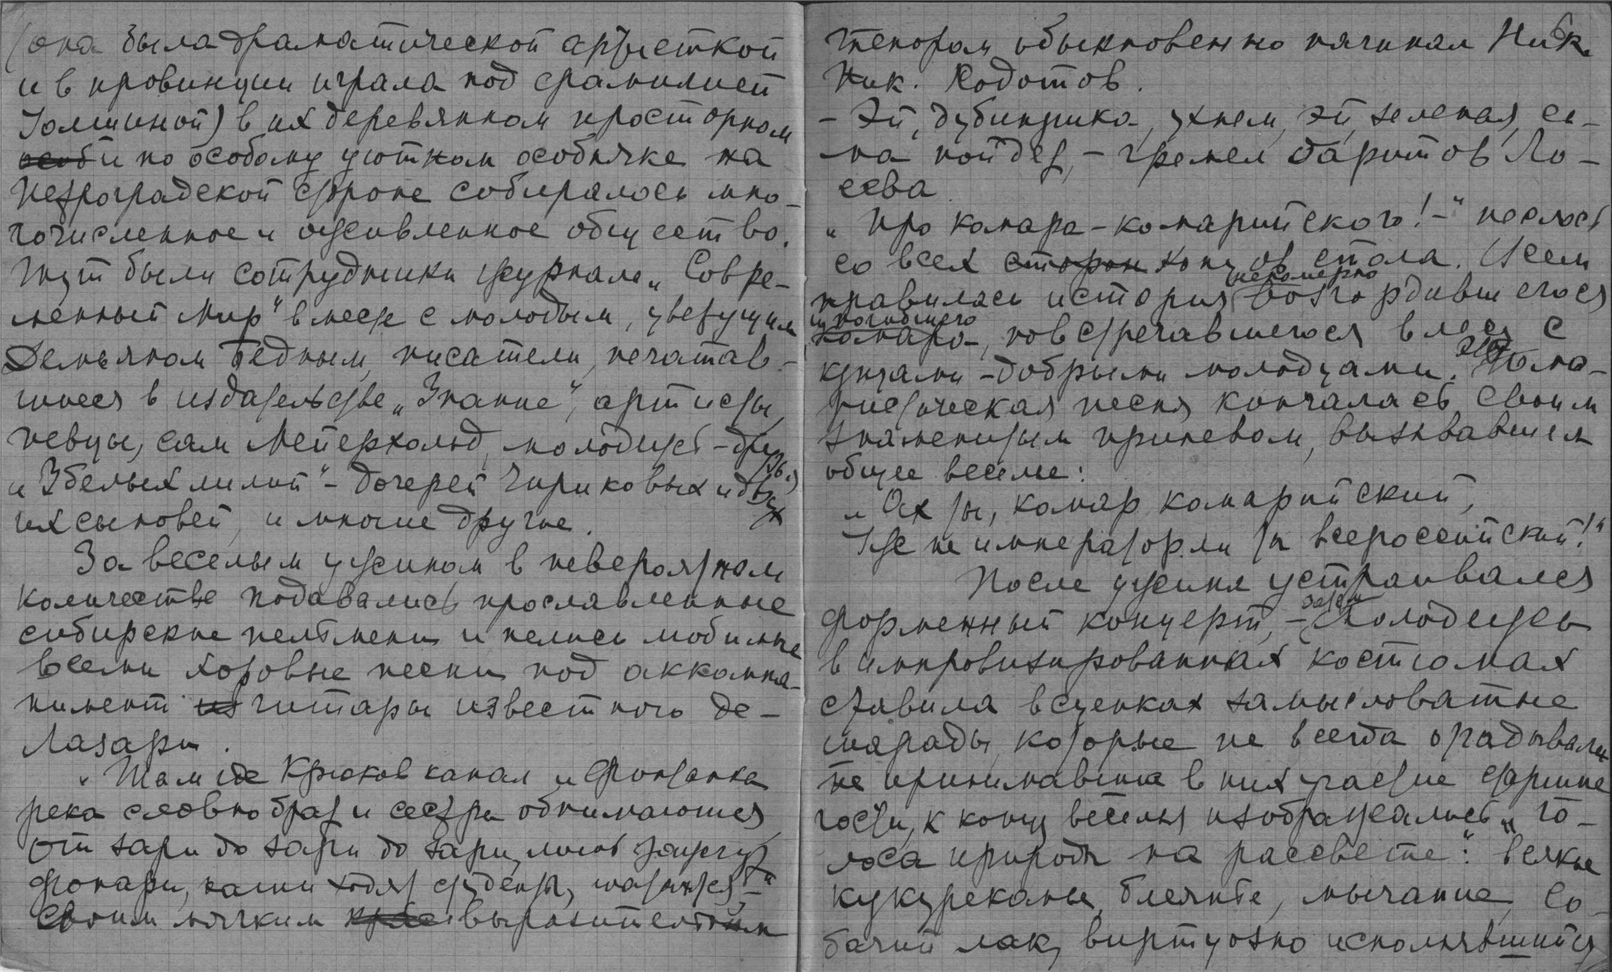 (она была драматической артисткой
и в провинции играла под фамилией
Иолшиной) в их деревянном просторном
и по особому уютном особняке на
Петроградской стороне собиралось мно-
гочисленное и оживленное общество.
Тут были сотрудники журнала „Совре-
менный Мир" вместе с молодым, цветущим
Демьяном Бедным, писатели, печатав-
шиеся в издательстве „Знание", артисты,
певцы, сам Мейерхольд, молодежь - друзья
и 3 белых лилий" - дочерей Чириковых и двух
их сыновей, и многие другие.
За веселым ужином в невероятном
количестве подавались прославленные
сибирские пельмени и пелись любимые
всеми хоровые песни под аккомпа-
нимент гитары известного де-
Лазари.
„Там где Крюков канал и Фонтанка
река словно брат и сестра обнимаются
от зари до зари до зари, лишь зажгут
фонари, там ходят студенты, шатаются -"
своим мягким выразительным
тенором обыкновенно начинал Ник.
Ник. Ходотов.
- Эй, дубинушка, ухнем, эй, зеленая, са-
ма пойдет, - гремел баритон Ло-
сева
„Про комара - комарийского! -" неслось
со всех концов стола. Всем
нравилась история непомерно возгордившегося
и погибшего комара, повстречавшегося вместе с
купцами - добрыми молодцами. Эта юмо-
ристическая песня кончалась своим
знаменитым припевом, вызвавшем
общее веселье:
„Ах ты, комар комарийский,
Уже не император ли ты всероссийский!"
После ужина устраивался
форменный концерт, - затем молодежь
в импровизированных костюмах
ставила в сценках замысловатые
шарады, которые не всегда отгадывали
не принимавшие в них участие старшие
гости, к концу веселья изображались „го-
лоса природы на рассвете": всякие
кукуреканье, блеянье, мычание, со-
бачий лай, виртуозно исполнявшийся